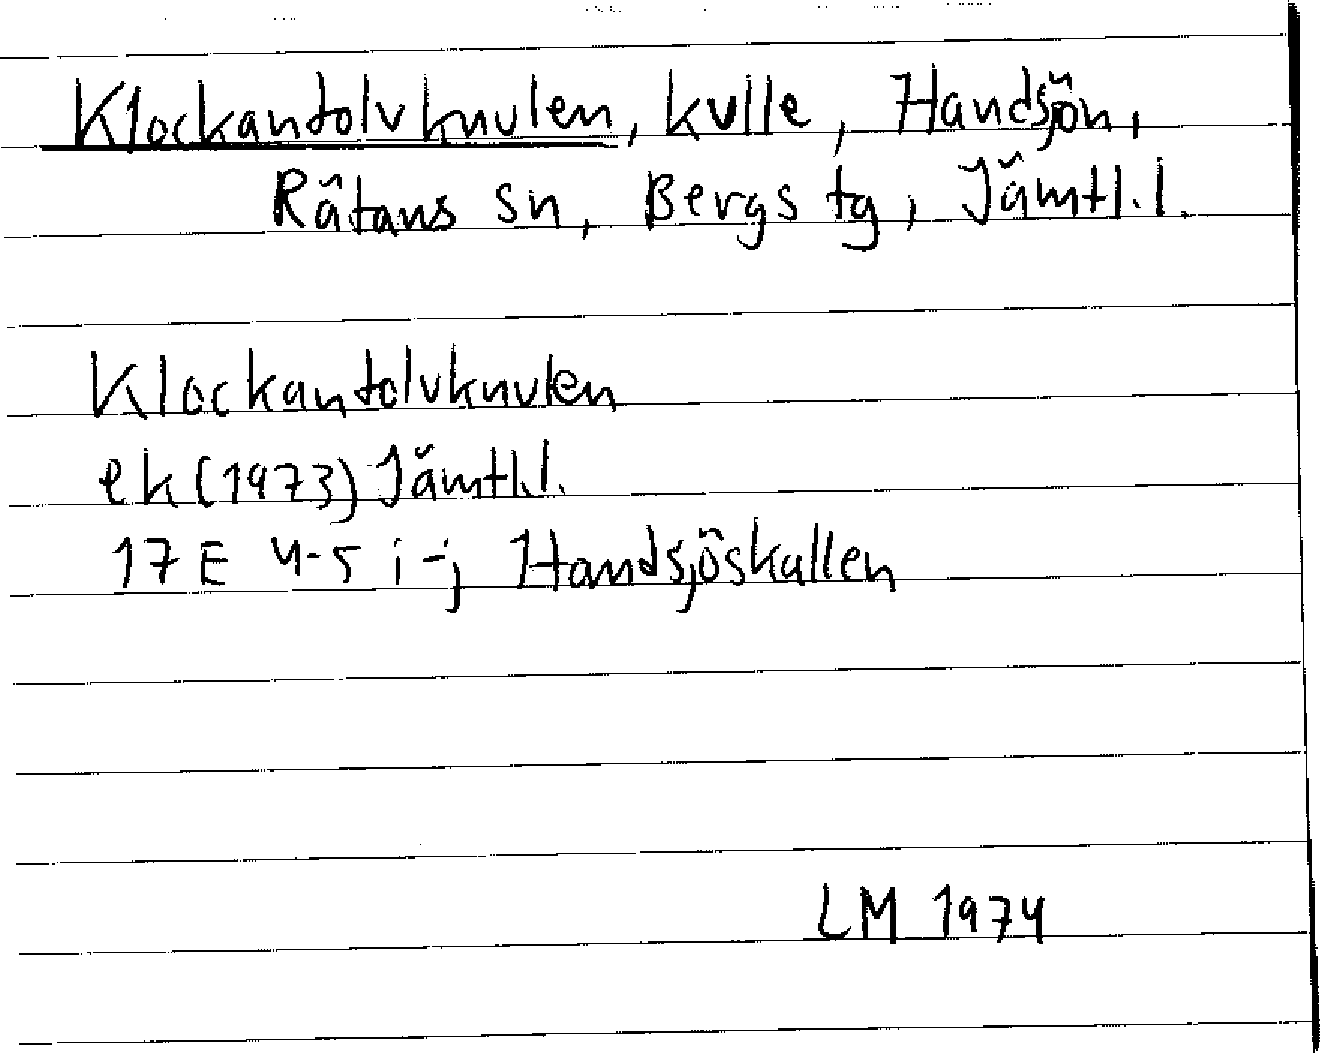 Klockantolvknulen, kulle, Handsjön,
Rätans sn, Bergs tg, Jämtl.l.
Klockantolvknulen
ek (1973) Jämtl.l.
17E 4-5 i-j Handsjöskallen
LM 1974